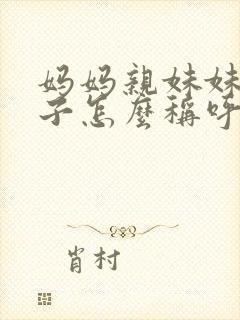 妈妈親妹妹
子怎麼稱呼
肖村